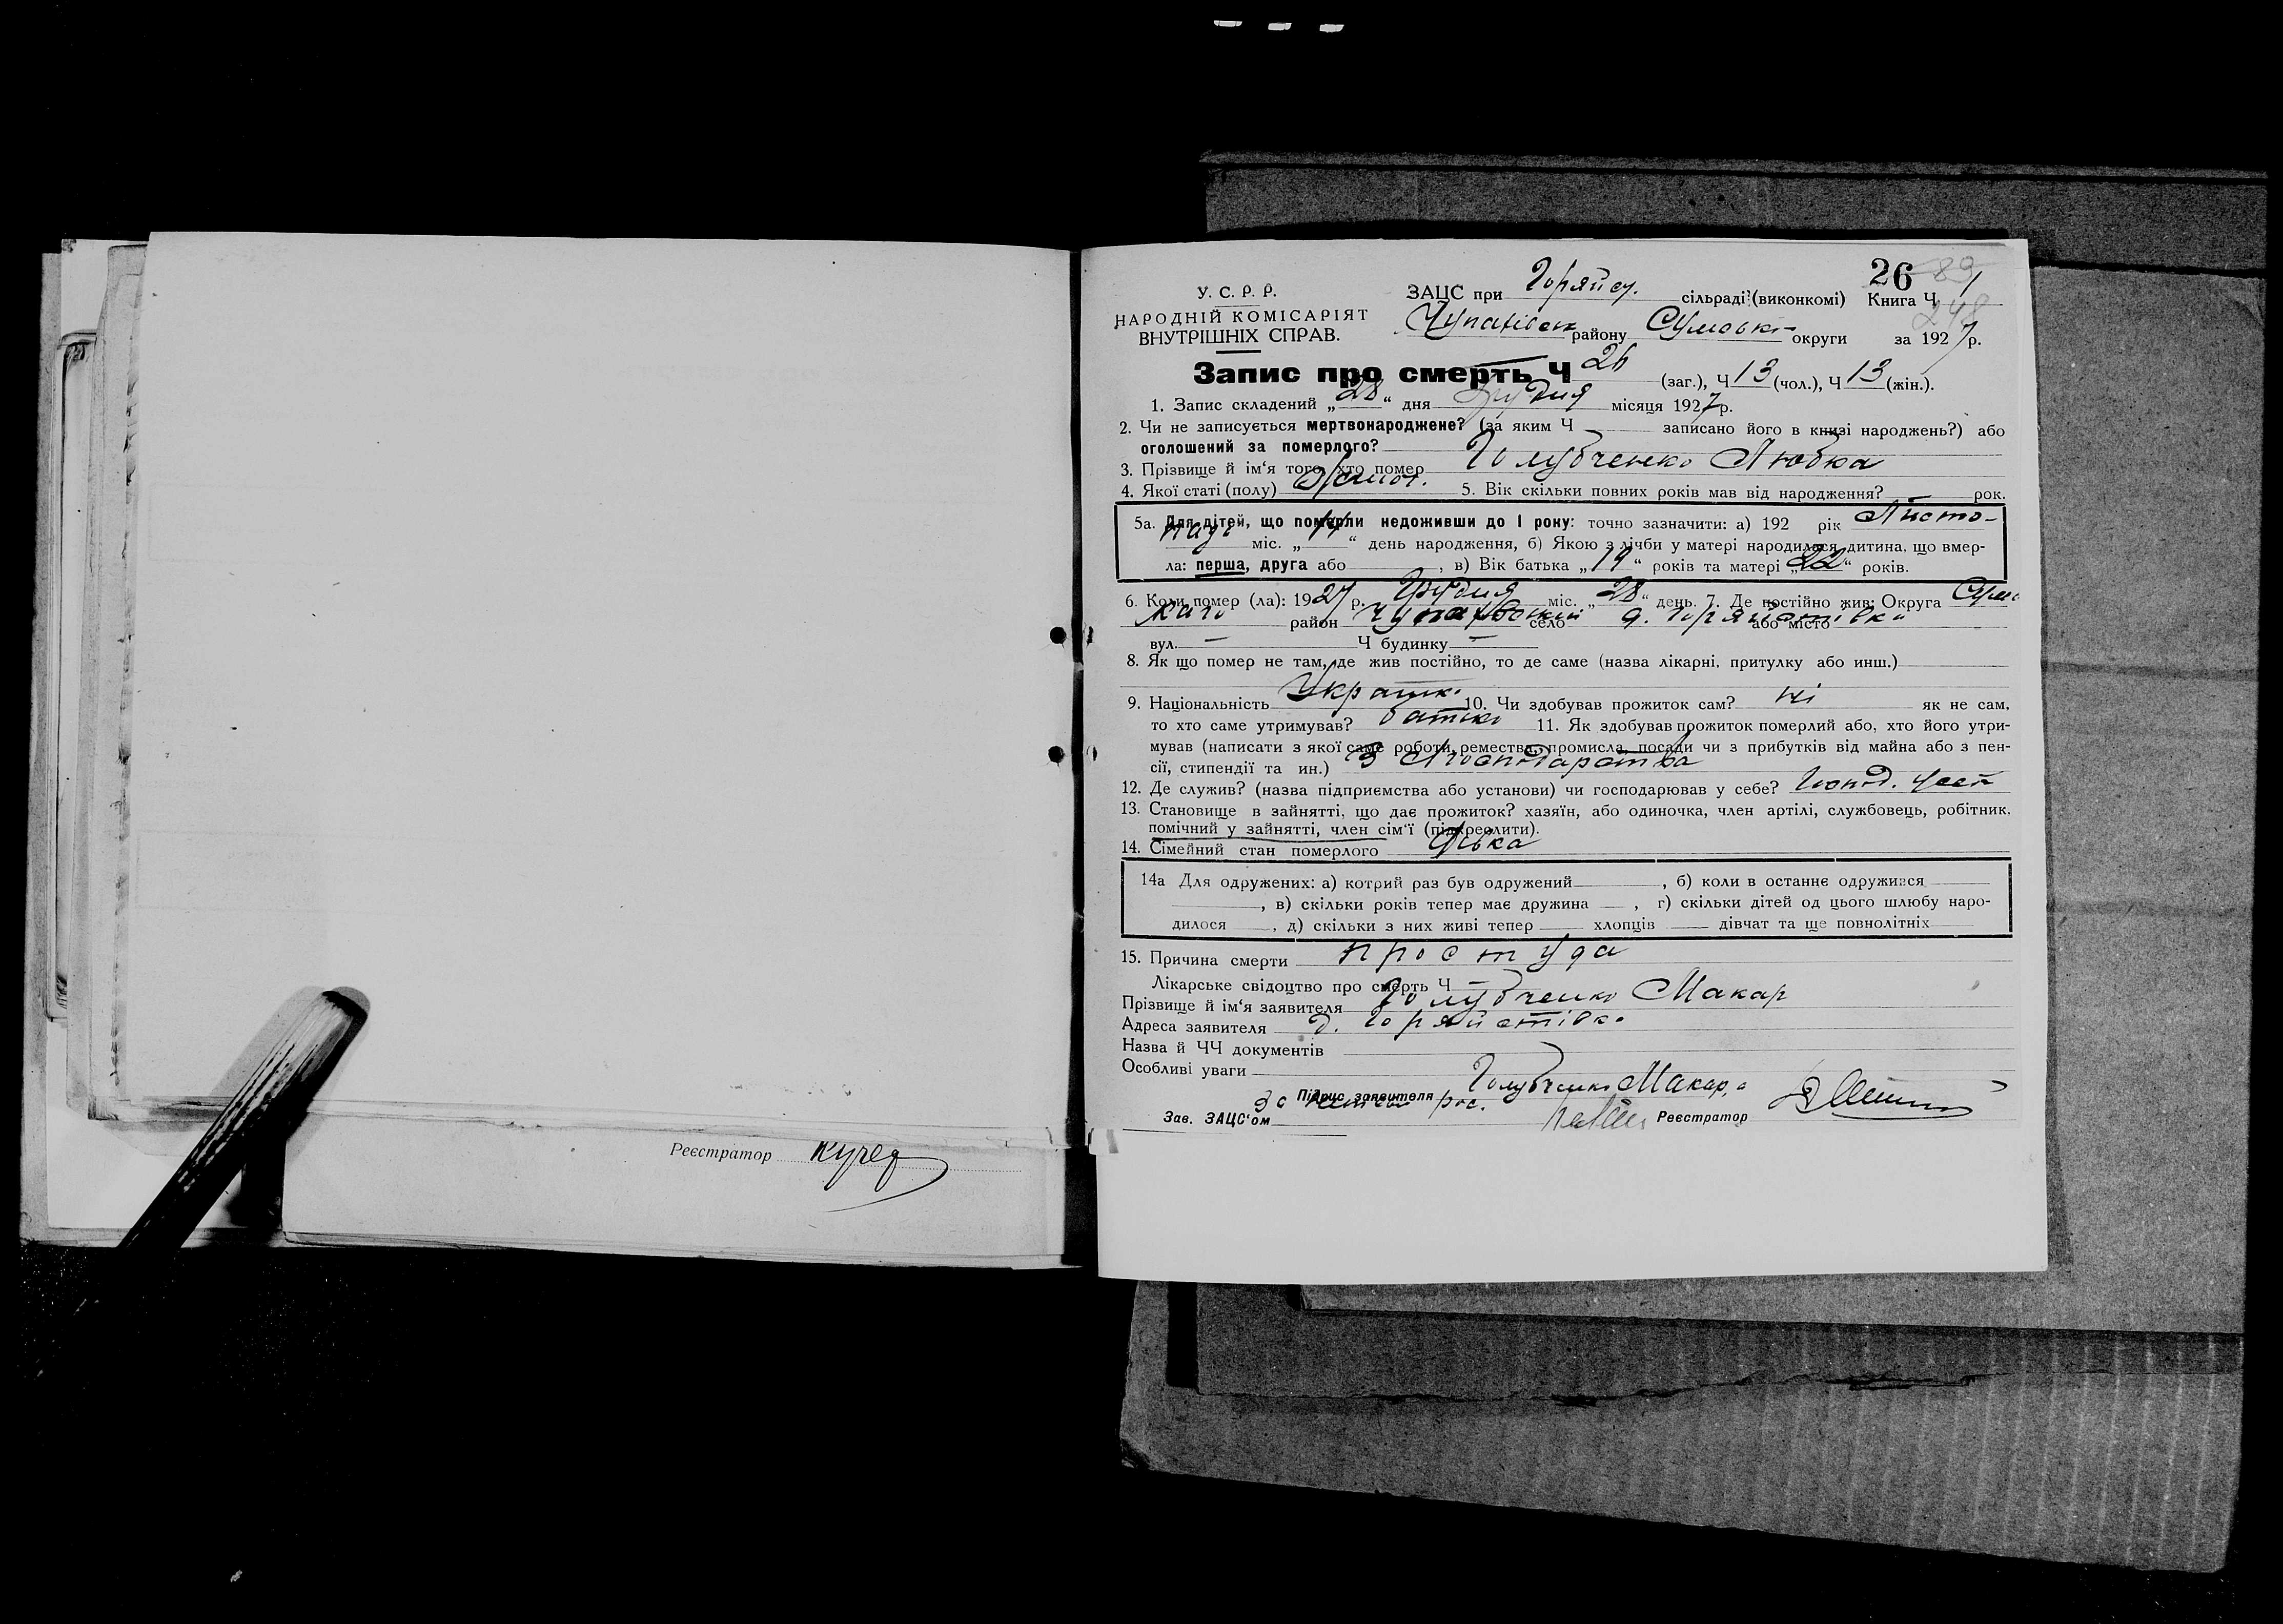 26 89
У. С. Р. Р.
НАРОДНІЙ КОМІСАРІЯТ
ВНУТРІШНІХ СПРАВ.
ЗАЦС при Горяйсу. сільраді (виконкомі) Книга Ч 1
248
Чупахівськ району Сумської округи за 1927 р.
Запис про смерть Ч 26 (заг.), Ч 13 (чол.), Ч 13 (жін.).
1. Запис складений „28“ дня грудня місяця 1927 р.
2. Чи не записується мертвонароджене? (за яким Ч записано його в книзі народжень?) або
оголошений за померлого?
3. Прізвище й ім‘я того, хто помер Голубченко Любка
4. Якої статі (полу) 5. Вік скільки повних років мав від народження? — рок.
5а. Для дітей, що померли недоживши до 1 року: точно зазначити: а) 192 рік Листо-
пада міс. „14“ день народження, б) Якою з лічби у матері народилася дитина, що вмер-
ла: перша, друга або , в) Вік батька „19“ років та матері „22“ років.
6. Коли помер (ла): 1927 р. Грудня міс. „28“ день. 7. Де постійно жив: Округа Сумс
кого район Чупахівський село або місто д. Горяйстівка
вул. — Ч будинку —
8. Як що помер не там, де жив постійно, то де саме (назва лікарні, притулку або инш.)
9. Національність Украшк. 10. Чи здобував прожиток сам? ні як не сам,
то хто саме утримував? батько 11. Як здобував прожиток померлий або, хто його утри-
мував (написати з якої саме роботи, ремества, промисла, посади чи з прибутків від майна або з пен-
сії, стипендії та ин.) З господарства
12. Де служив? (назва підприємства або установи) чи господарював у себе? Господ. у себе
13. Становище в зайнятті, що дає прожиток? хазяїн, або одиночка, член артілі, службовець, робітник,
помічний у зайнятті, член сім‘ї (підкреслити).
14. Сімейний стан померлого Дівка
14а Для одружених: а) котрий раз був одружений , б) коли в останнє одружився
, в) скільки років тепер має дружина , г) скільки дітей од цього шлюбу наро-
дилося , д) скільки з них живі тепер хлопців дівчат та ще повнолітніх
15. Причина смерти простуда
Лікарське свідоцтво про смерть Ч —
Прізвище й ім‘я заявителя Голубченко Макар
Адреса заявителя д. Горяйстівка
Назва й ЧЧ документів
Особливі уваги
Підпис заявителя Голубченко Макара
За рос.
Зав. ЗАЦС‘ом Реєстратор
Реєстратор Кучер